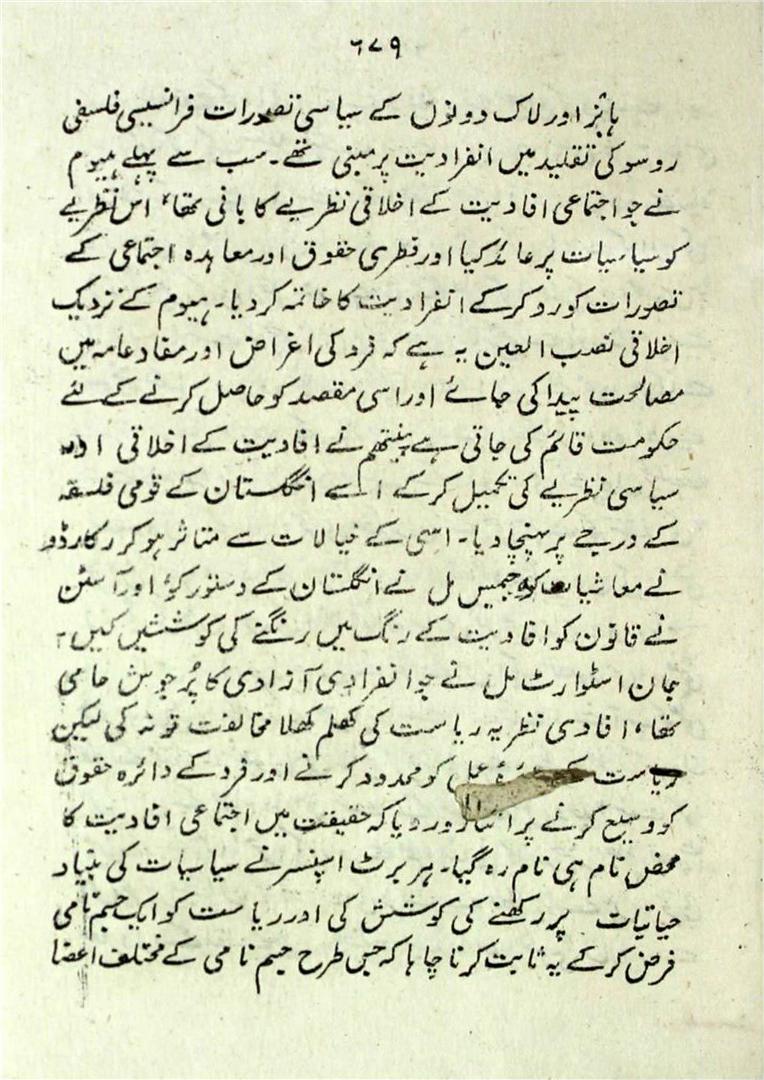 ٦٧٩
ہابز اور لاک دونوں کے سیاسی تصورات فرانسیسی فلسفی
روسو کی تقلید میں انفرادیت پر مبنی تھے۔ سب سے پہلے ہیوم
نے جو اجتماعی افادیت کے اخلاقی نظریے کا بانی تھا، اس نظریے
کو سیاسیات پر عائد کیا اور فطری حقوق اور معاہدہ اجتماعی کے
تصورات کو رد کرکے انفرادیت کا خاتمہ کر دیا۔ ہیوم کے نزدیک
اخلاقی نصب العین یہ ہے کہ فرد کی اغراض اور مفاد عامہ میں
مصالحت پیدا کی جائے اور اسی مقصد کو حاصل کرنے کے لئے
حکومت قائم کی جاتی ہے بینتھم نے افادیت کے اخلاقی اور
سیاسی نظریے کی تکمیل کرکے اسے انگلستان کے قومی فلسفہ
کے درجے پر پہنچا دیا۔ اسی کے خیالات سے متاثر ہوکر رکارڈو
نے معاشیات کو جمیس مل نے انگلستان کے دستور کو اور آسٹن
نے قانون کو افادیت کے رنگ میں رنگنے کی کوششیں کیں۔
جان اسٹوارٹ مل نے جو انفرادی آزادی کا پُرجوش حامی
تھا، افادی نظریہ ریاست کی کھلم کھلا مخالفت تو نہ کی لیکن
ریاست کے عمل کو محدود کرنے اور فرد کے دائرہ حقوق
کو وسیع کرنے پر اتنا زور دیا کہ حقیقت میں اجتماعی افادیت کا
محض نام ہی نام رہ گیا۔ ہربرٹ اسپنسر نے سیاسیات کی بنیاد
حیاتیات پر رکھنے کی کوشش کی اور ریاست کو ایک جسم نامی
فرض کرکے یہ ثابت کرنا چاہا کہ جس طرح جسم نامی کے مختلف اعضا